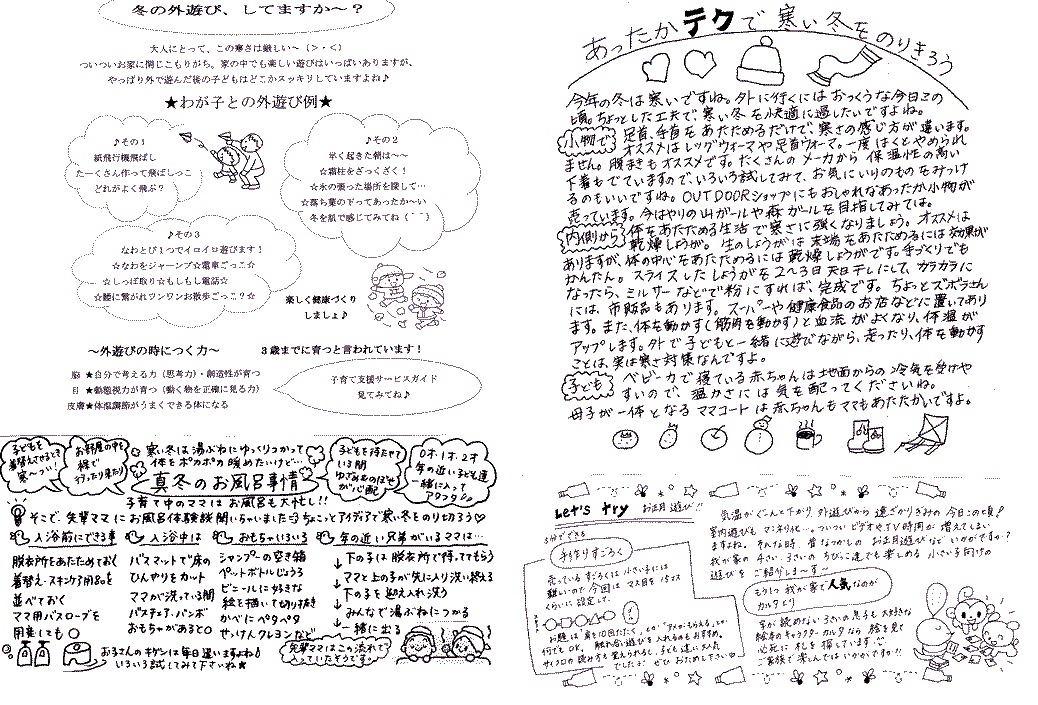 冬の外遊び、してますか～？
大人にとって、この寒さは厳しい～（＞・＜）
ついついお家に閉じこもりがち。家の中でも楽しい遊びはいっぱいありますが、
やっぱり外で遊んだ後の子どもはどこかスッキリしていますよね♪
★わが子との外遊び例★
♪その１
紙飛行機飛ばし
たーくさん作って飛ばしっこ
どれがよく飛ぶ？
♪その２
早く起きた朝は～～
☆霜柱をざっくざく！
☆氷の張った場所を探して…
☆落ち葉の下ってあったか～い
冬を肌で感じてみてね（＾＾）
♪その３
なわとび１つでイロイロ遊びます！
☆なわをジャーンプ☆電車ごっこ☆
☆しっぽ取り☆もしもし電話☆
☆腰に繋がれワンワンお散歩ごっこ？☆
楽しく健康づくり
しましょ♪
～外遊びの時につく力～　３歳までに育つと言われています！
脳　★自分で考える力（思考力）・創造性が育つ
目　★動態視力が育つ（動く物を正確に見る力）
皮膚★体温調節がうまくできる体になる
子育て支援サービスガイド
見てみてね♪
あったかテクで寒い冬をのりきろう
今年の冬は寒いですね。外に行くにはおっくうな今日この
頃。ちょっとした工夫で、寒い冬を快適に過ごしたいですよね。
小物で 足首、手首をあたためるだけで、寒さの感じ方が違います。
オススメはレッグウォーマや足首ウォーマ。一度はくとやめられ
ません。腹まきもオススメです。たくさんのメーカから保温性の高い
下着もでていますので、いろいろ試してみて、お気にいりのものをみつけ
るのもいいですね。OUTDOORショップにもおしゃれなあったか小物が
売っています。今はやりの山ガールや森ガールを目指してみては。
内側から 体をあたためる生活で寒さに強くなりましょう。オススメは
乾燥しょうが。生のしょうがは末端をあたためるには効果が
ありますが、体の中心をあたためるには乾燥しょうがです。手づくりでも
かんたん。スライスしたしょうがを2～3日天日干しにして、カラカラに
なったら、ミルサーなどで粉にすれば、完成です。ちょっとズボラさん
には、市販品もあります。スーパーや健康食品のお店などに置いてあり
ます。また、体を動かす（筋肉を動かす）と血流がよくなり、体温が
アップします。外で子どもと一緒に遊びながら、走ったり、体を動かす
ことは、実は寒さ対策なんですよ。
子ども ベビーカで寝ている赤ちゃんは地面からの冷気を受けや
すいので、温かさには気を配ってくださいね。
母子が一体となるママコートは赤ちゃんもママもあたたかいですよ。
子どもを
着替えさせるとき
寒～い！
お部屋の中を
裸で
行ったり来たり
寒い冬は湯ぶねにゆっくりつかって
体をポカポカ暖めたいけど…
真冬のお風呂事情
子どもを待たせて
いる間
ゆざめものぼせ
が心配
0才・1才・2才
年の近い子ども達
一緒に入って
アタフタ
子育て中のママはお風呂も大忙し!!
そこで、先輩ママにお風呂体験談聞いちゃいました ちょこっとアイディアで寒い冬をのりきろう♡
入浴前にできる事
脱衣所をあたためておく
着替え・スキンケア用品を
並べておく
ママ用バスローブを
用意しても○
入浴中は
バスマットで床の
ひんやりをカット
ママが洗っている間
バスチェア・バンボ
おもちゃがあると○
おもちゃいろいろ
シャンプーの空き箱
ペットボトルじょうろ
ビニールに好きな
絵を描いて切り抜き
かべにペタペタ
せっけんクレヨンなど
年の近い兄弟がいるママは…
下の子は脱衣所で待っててもらう
↓ママと上の子が先に入り洗い終える
↓下の子を迎え入れ洗う
↓みんなで湯ぶねにつかる
↓一緒に出る
お子さんのキゲンは毎日違いますよね♪
いろいろ試してみて下さいね★
先輩ママはこの流れで
入っていたそうです。
Let's try お正月遊び!!
気温がぐんと下がり、外遊びから遠ざかりぎみの今日この頃！
室内遊びもマンネリ化…。ついついビデオやTV時間が増えてしまい
ますよね。そんな時、昔なつかしのお正月遊びなどいかがですか？
我が家の4さい、3さいのちびっこ達でも楽しめる小さい子向けの
遊びをご紹介しま～す～
5分でできる
手作りすごろく
売っているすごろくは小さい子には
難しいので今回はマス目を15マス
くらいに設定して、
お題は「鼻を10回たたく」とか「アメがもらえる」とか
何でもOK。触れ合い遊びを入れるのもおすすめ。
サイコロの読み方も覚えられるし、子ども達に大人気
でしたよ。ぜひおためし下さい☺
もう1つ我が家で人気なのが
カルタとり
字が読めない3さいの息子も大好きな
絵本のキャラクターカルタなら絵を見て
必死に札を探しています♡
ご家族で楽しんではいかがですか!!